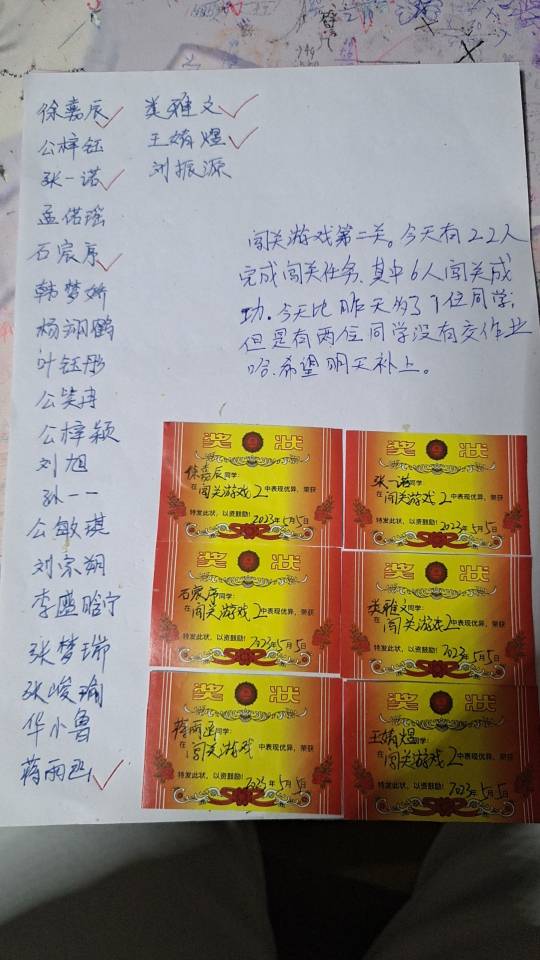 徐嘉辰
公梓钰
张一诺
孟偌瑶
石宸序
韩梦娇
杨翔鹏
叶钰彤
公笑冉
公梓颖
刘旭
孙一一
公敏琪
刘宗朔
李盛晗宁
张梦瑞
张峻瑜
华小鲁
蒋雨函
类雅文
王婧煜
刘振源
闯关游戏第二关。今天有22人
完成闯关任务,其中6人闯关成
功。今天比昨天多了1位同学,
但是有两位同学没有交作业
哈,希望明天补上。
奖状
徐嘉辰同学:
在闯关游戏2中表现优异,荣获
特发此状,以资鼓励!
2023年5月5日
奖状
张一诺同学:
在闯关游戏2中表现优异,荣获
特发此状,以资鼓励!
2023年5月5日
奖状
石宸序同学:
在闯关游戏2中表现优异,荣获
特发此状,以资鼓励!
2023年5月5日
奖状
类雅文同学:
在闯关游戏2中表现优异,荣获
特发此状,以资鼓励!
2023年5月5日
奖状
蒋雨函同学:
在闯关游戏中表现优异,荣获
特发此状,以资鼓励!
2023年5月5日
奖状
王婧煜同学:
在闯关游戏2中表现优异,荣获
特发此状,以资鼓励!
2023年5月5日